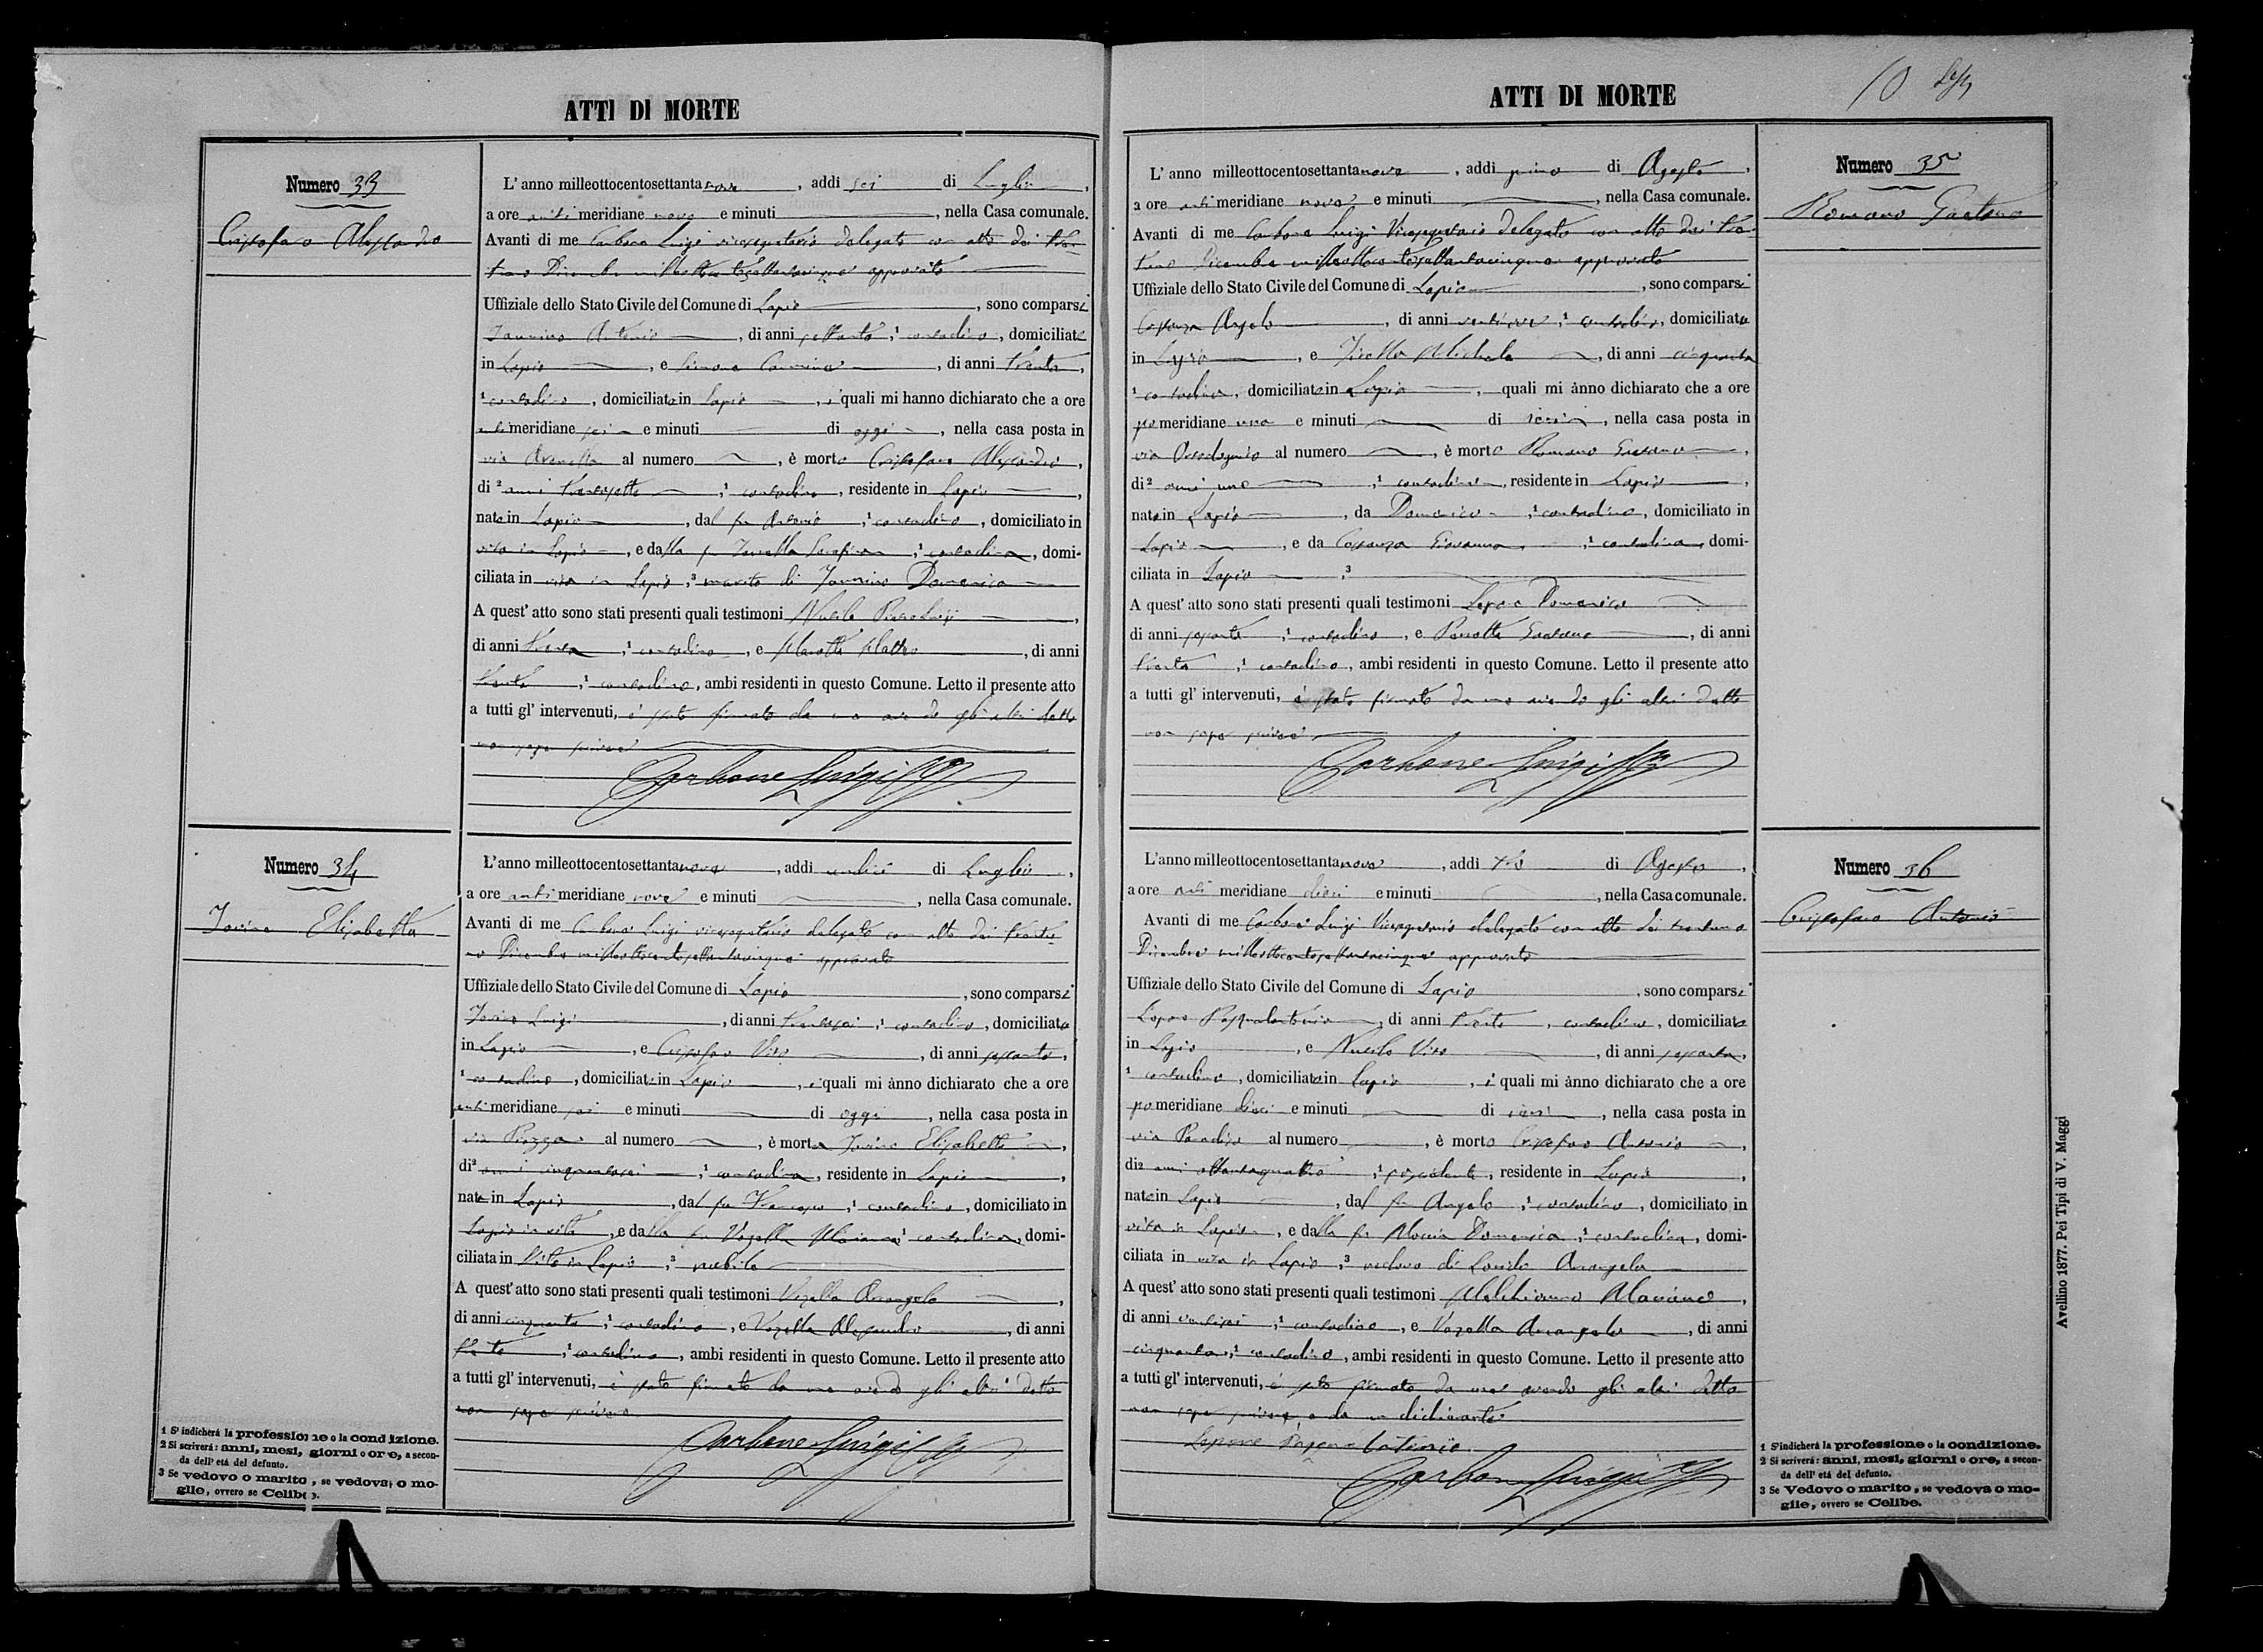 ATTI DI MORTE
Numero 33
Crissofaro Alessandro
L' anno milleottocentosettantanove, addi sei di Luglio,
a ore anti meridiane nove e minuti , nella Casa comunale.
Avanti di me Carbone Luigi vicesegretario delegato con atto dei tren-
tuno Dicembre milleottocentosettantacinque approvato
Uffiziale dello Stato Civile del Comune di Lapio , sono comparsi
Iannino Antonio , di anni settanta, 1 contadino, domiciliato
in Lapio , e Carmine , di anni trenta,
1 contadino, domiciliato in Lapio , i quali mi hanno dichiarato che a ore
antimeridiane sei e minuti di oggi , nella casa posta in
via al numero , è morto Crissofaro Alessandro,
di 2 anni trentasette , 1 contadino, residente in Lapio ,
nato in Lapio , dal fu Antonio , 1 contadino, domiciliato in
vita in Lapio , e dalla fu Serafina , 1 contadina, domi-
ciliata in vita in Lapio, 3 marito di Iannino Domenica
A quest' atto sono stati presenti quali testimoni Nucilo ,
di anni trenta , 1 contadino, e Marotta , di anni
trenta , 1 contadino, ambi residenti in questo Comune. Letto il presente atto
a tutti gl' intervenuti, è stato firmato da me avendo gli altri detto
non saper scrivere
Carbone Luigi
Numero 34
Iorino Elisabetta
L'anno milleottocentosettantanove , addi undici di Luglio ,
a ore anti meridiane nove e minuti , nella Casa comunale.
Avanti di me Carbone Luigi vicesegretario delegato con atto dei trentu-
no Dicembre milleottocentosettantacinque approvato
Uffiziale dello Stato Civile del Comune di Lapio , sono comparsi
Iorino Luigi , di anni trentasei, 1 contadino, domiciliato
in Lapio , e Crissofaro Vito , di anni sessanta,
1 contadino, domiciliato in Lapio , i quali mi ànno dichiarato che a ore
antimeridiane sei e minuti di oggi , nella casa posta in
via Piazza al numero , è morta Iorino Elisabetta ,
di 2 anni cinquantasei , 1 contadina, residente in Lapio ,
nata in Lapio , dal fu Francesco, 1 contadino, domiciliato in
Lapio in vita , e dalla fu Vozella Marianna 1 contadina, domi-
ciliata in Vita in Lapio , 3 nubile
A quest' atto sono stati presenti quali testimoni Vozella Arcangelo ,
di anni cinquanta, 1 contadino , e Vozella Alessandro , di anni
trenta , 1 contadino, ambi residenti in questo Comune. Letto il presente atto
a tutti gl' intervenuti, è stato firmato da me avendo gli altri detto
non saper scrivere
Carbone Luigi
1 S' indicherà la professione o la condizione.
2 Si scriverà: anni, mesi, giorni o ore, a secon-
da dell' età del defunto.
3 Se vedovo o marito, se vedova, o mo-
glie, ovvero se Celibe.
ATTI DI MORTE
10
L' anno milleottocentosettantanove , addi primo di Agosto ,
a ore antimeridiane nove e minuti , nella Casa comunale.
Avanti di me Carbone Luigi Vicesegretario delegato con atto dei tren-
tuno Dicembre milleottocentosettantacinque approvato
Uffiziale dello Stato Civile del Comune di Lapio , sono comparsi
Costanza Angelo , di anni , 1 contadino, domiciliato
in Lapio , e Michele , di anni cinquanta
1 contadino, domiciliato in Lapio , quali mi ànno dichiarato che a ore
pomeridiane una e minuti di ieri , nella casa posta in
via al numero , è morto Romano Gaetano ,
di 2 anni uno , 1 contadino , residente in Lapio ,
nato in Lapio , da Domenico , 1 contadino, domiciliato in
Lapio , e da Costanza Giovanna , 1 contadina, domi-
ciliata in Lapio , 3
A quest' atto sono stati presenti quali testimoni Lepore Domenico
di anni sessanta , 1 contadino , e Perrotta Gaetano , di anni
trenta , 1 contadino, ambi residenti in questo Comune. Letto il presente atto
a tutti gl' intervenuti, è stato firmato da me avendo gli altri detto
non saper scrivere
Carbone Luigi
Numero 35
Romano Gaetano
L'anno milleottocentosettantanove , addi tre di Agosto ,
a ore anti meridiane dieci e minuti , nella Casa comunale.
Avanti di me Carbone Luigi Vicesegretario delegato con atto dei trentuno
Dicembre milleottocentosettantacinque approvato
Uffiziale dello Stato Civile del Comune di Lapio , sono comparsi
Lepore Pasqualantonio , di anni trenta , contadino, domiciliato
in Lapio , e Nucilo Vito , di anni sessanta,
1 contadino, domiciliato in Lapio , i quali mi ànno dichiarato che a ore
pomeridiane dieci e minuti di ieri , nella casa posta in
via Paradiso al numero , è morto Crissofaro Antonio ,
di 2 anni ottantaquattro , 1 possidente, residente in Lapio ,
nato in Lapio , dal fu Angelo , 1 contadino, domiciliato in
vita in Lapio , e dalla fu Domenica , 1 contadina, domi-
ciliata in vita in Lapio , 3 vedovo di Arcangela
A quest' atto sono stati presenti quali testimoni Melchionno ,
di anni ventisei , 1 contadino , e Vozella Arcangelo , di anni
cinquanta, 1 contadino, ambi residenti in questo Comune. Letto il presente atto
a tutti gl' intervenuti, è stato firmato da me avendo gli altri detto
non saper scrivere, e da un dichiarante
Lepore
Carbone Luigi
Numero 36
Crissofaro Antonio
1 S'indicherà la professione o la condizione.
2 Si scriverà: anni, mesi, giorni o ore, a secon-
da dell' età del defunto.
3 Se Vedovo o marito, se vedova o mo-
glie, ovvero se Celibe.
Avellino 1877. Pei Tipi di V. Maggi